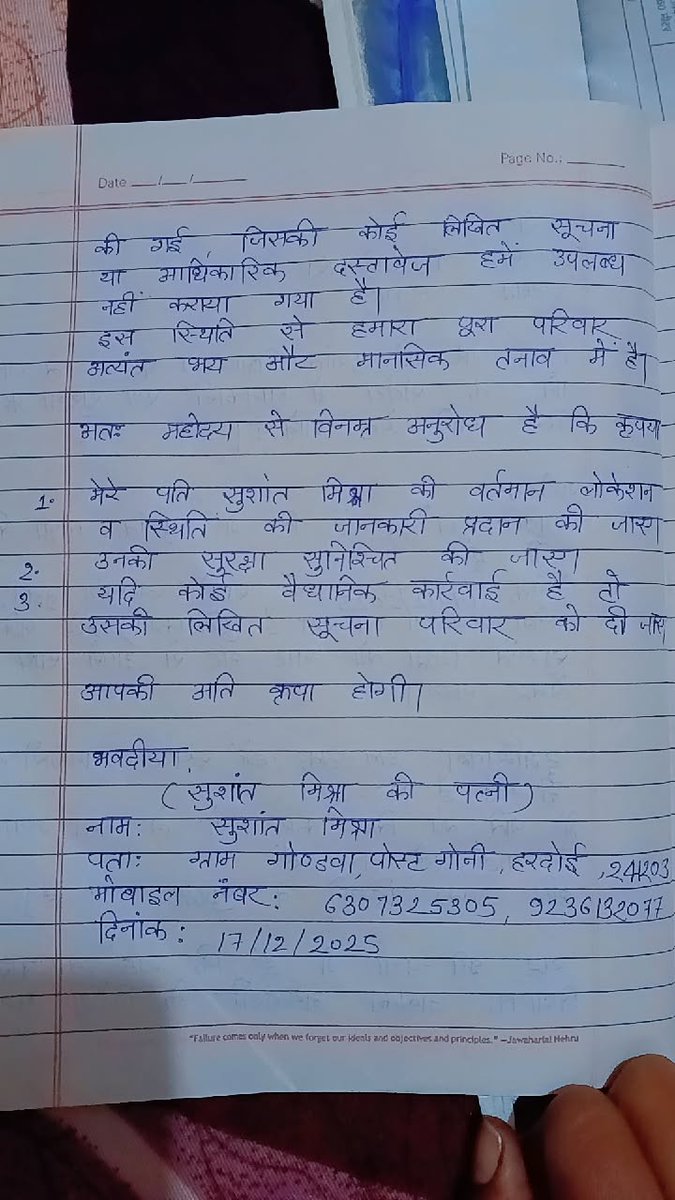 Date __/__/____
Page No.: ______
की गई जिसकी कोई लिखित सूचना
या आधिकारिक दस्तावेज हमें उपलब्ध
नहीं कराया गया है।
इस स्थिति से हमारा पूरा परिवार
अत्यंत भय और मानसिक तनाव में है।
अतः महोदय से विनम्र अनुरोध है कि कृपया
1. मेरे पति सुशांत मिश्रा की वर्तमान लोकेशन
व स्थिति की जानकारी प्रदान की जाए।
2. उनकी सुरक्षा सुनिश्चित की जाए।
3. यदि कोई वैधानिक कार्रवाई है तो
उसकी लिखित सूचना परिवार को दी जाए
आपकी अति कृपा होगी।
भवदीया,
(सुशांत मिश्रा की पत्नी)
नाम: सुशांत मिश्रा
पता: ग्राम गोण्डवा, पोस्ट गोनी, हरदोई, 241203
मोबाइल नंबर: 6307325305, 9236132077
दिनांक: 17/12/2025
"Failure comes only when we forget our ideals and objectives and principles." –Jawaharlal Nehru